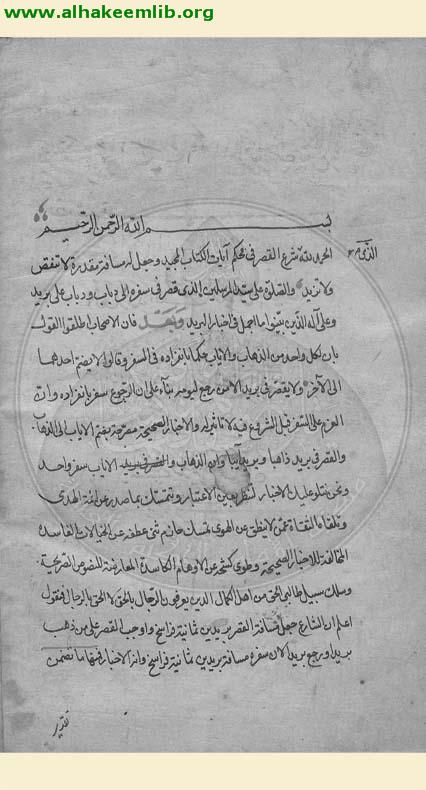 www.alhakeemlib.org
بسم الله الرحمن الرحيم
الحمد لله شرع القصر في محكم آيات الكتاب المجيد وجعل له مسافة مقدرة لا تنقص
الذي
ولا تزيد والصلوة على سيد المرسلين الذي قصر في سفره الى ذباب وذباب على بريد
وعلى آله الذين بينوا ما اجمل في اخبار البريد وبعد فان الاصحاب اطلقوا القول
بان لكل واحد من الذهاب والاياب حكما بانفراده في السفر وقالوا لا يضم احدهما
الى الآخر ولا يقصر في بريد الا من رجع ليومه بناء على ان الرجوع سفر بانفراده وان
العزم على السفر قبل الشروع فيه لا تاثير له والاخبار الصحيحة مصرحة بضم الاياب الى الذهاب
والقصر في بريد ذاهبا وبريد آيبا وان الذهاب والاياب سفر واحد
ونحن نتلو عليك الاخبار لتنظر بعين الاعتبار وتتمسك بما صدر عن ائمة الهدى
وتلقاه الثقاة عمن لا ينطق عن الهوى تمسك حازم ثنى عطفه عن الخيالات الفاسدة
المخالفة للاخبار الصحيحة وطوى كشحه عن الاوهام الكاسدة المعارضة للنصوص الصريحة
وسلك سبيل طالبي الحق من اهل الكمال الذين يعرفون الرجال بالحق لا الحق بالرجال فنقول
اعلم ان الشارع جعل مسافة القصر بريدين ثمانية فراسخ واوجب القصر على من ذهب
بريدا ورجع بريدا لان سفره مسافة بريدين ثمانية فراسخ واما الاخبار فمنها ما تضمن